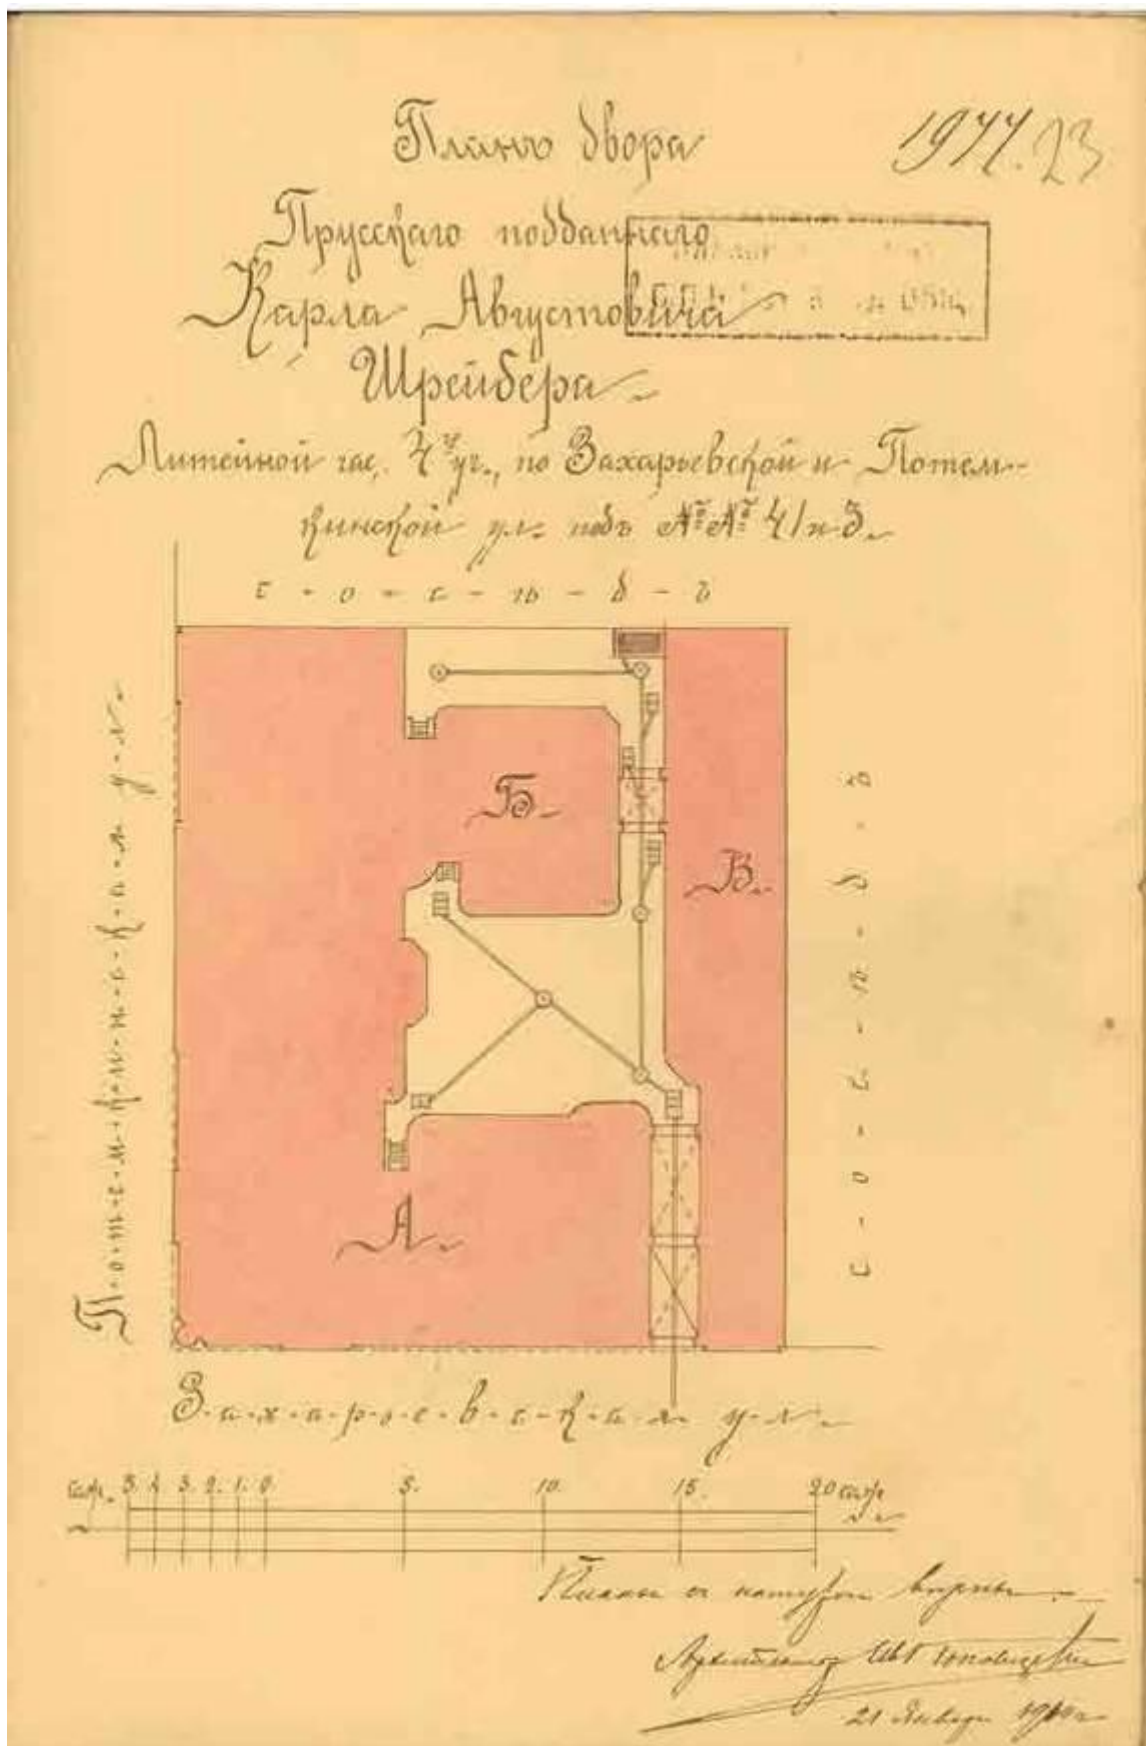 Планъ двора
1977.23
Прусскаго подданнаго
Карла Августовича
Шрейбера
Литейной час. 4го уч., по Захарьевской и Потем-
кинской ул. подъ №№ 41 и 3.
с-о-с-ѣ-д-ъ
П-о-т-е-м-к-и-н-с-к-а-я у-л.
Б.
В.
с-о-с-ѣ-д-ъ
А.
З-а-х-а-р-ь-е-в-с-к-а-я у-л.
саж. 5. 4. 3. 2. 1. 0. 5. 10. 15. 20 саж
Планъ съ натурою вѣренъ
Архитекторъ
21 Января